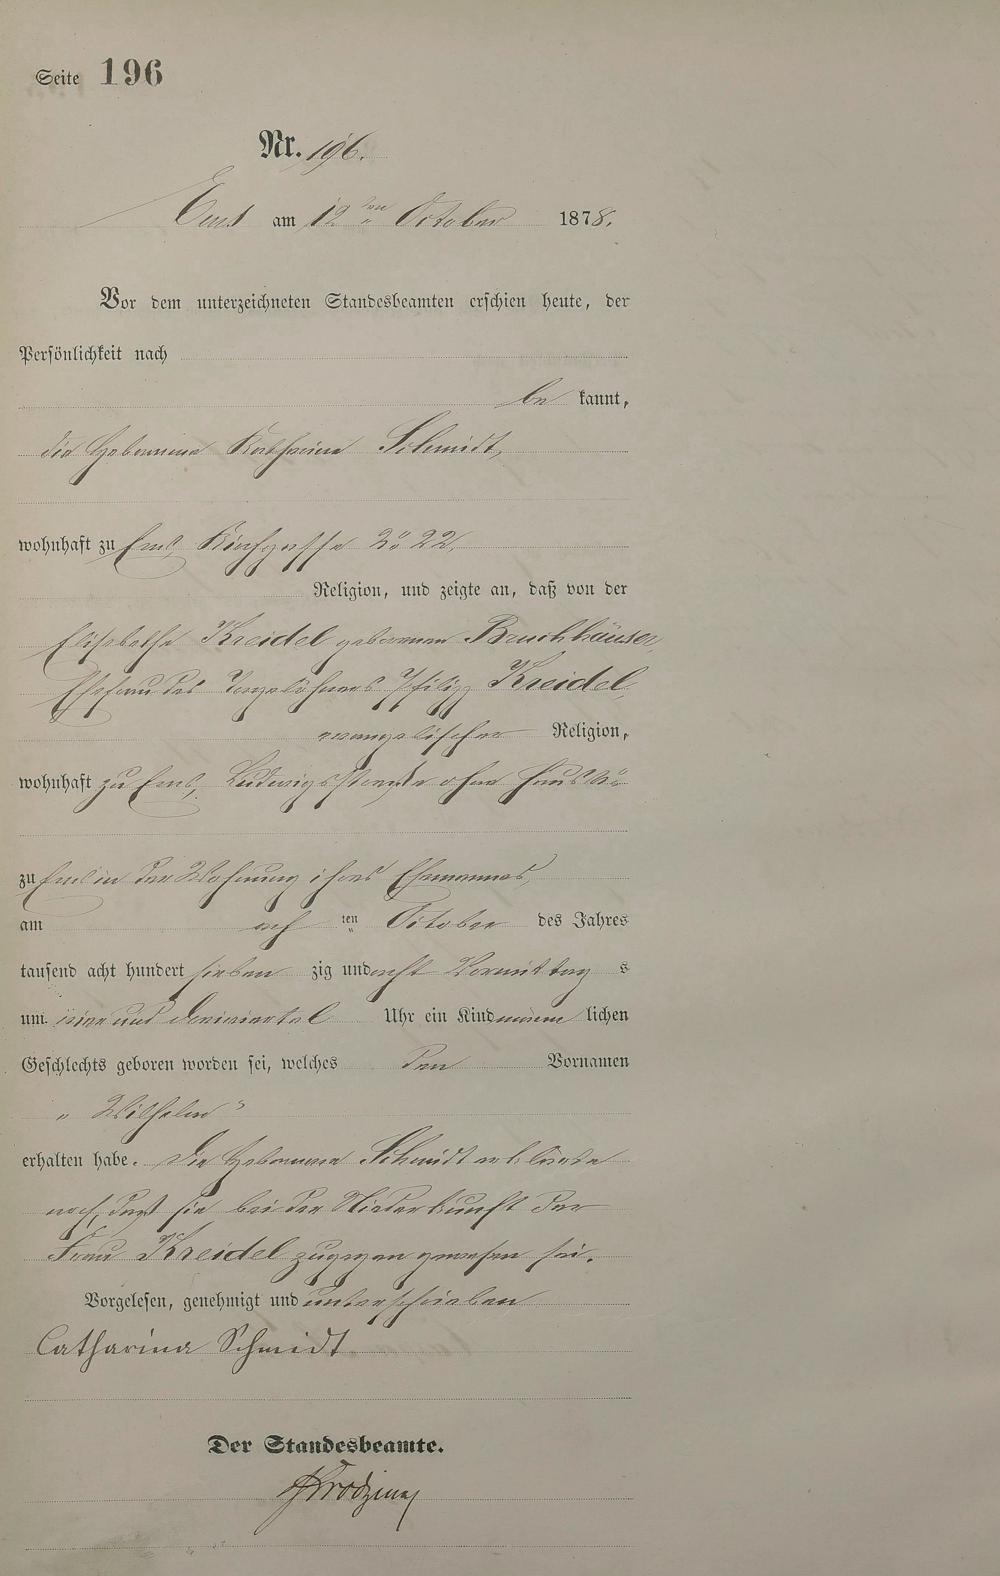 Seite 196
Nr. 196.
Ems am 12ten October 1878.
Vor dem unterzeichneten Standesbeamten erschien heute, der
Persönlichkeit nach
be kannt,
die Hebamme Katharine Schmidt,
wohnhaft zu Ems, Kirchgasse No 22,
Religion, und zeigte an, daß von der
Elisabethe Kreidel gebornen Bruchhäuser,
Ehefrau des Tagelöhners Philipp Kreidel,
evangelischer Religion,
wohnhaft zu Ems, Ludwigsstraße ohne Haus No
zu Ems in der Wohnung ihres Ehemannes,
am ach ten October des Jahres
tausend acht hundert sieben zig und acht Vormittag s
um vier und dreiviertel Uhr ein Kind männ lichen
Geschlechts geboren worden sei, welches den Vornamen
„Wilhelm“
erhalten habe. Die Hebamme Schmidt erklärte
noch, daß sie bei der Niederkunft der
Frau Kreidel zugegen gewesen sei.
Vorgelesen, genehmigt und unterschrieben
Catharina Schmidt
Der Standesbeamte.